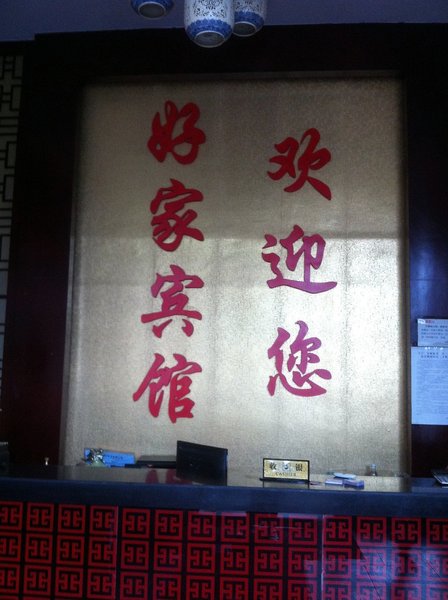 好家宾馆
欢迎您
收银
CASHIER